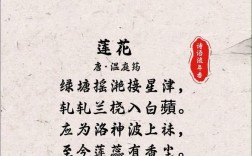 莲花
唐·温庭筠
绿塘摇滟接星津，
轧轧兰桡入白蘋。
应为洛神波上袜，
至今莲蕊有香尘。
诗语流年香